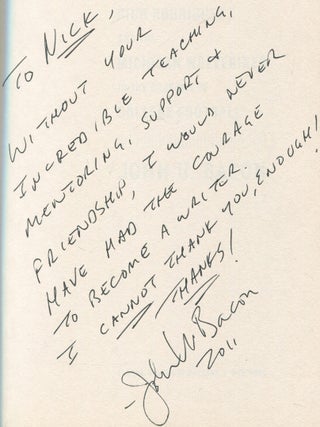 TO NICK,
WITHOUT YOUR
INCREDIBLE TEACHING,
MENTORING, SUPPORT &
FRIENDSHIP, I WOULD NEVER
HAVE HAD THE COURAGE
TO BECOME A WRITER.
I CANNOT THANK YOU ENOUGH!
THANKS!
- John U. Bacon
2011